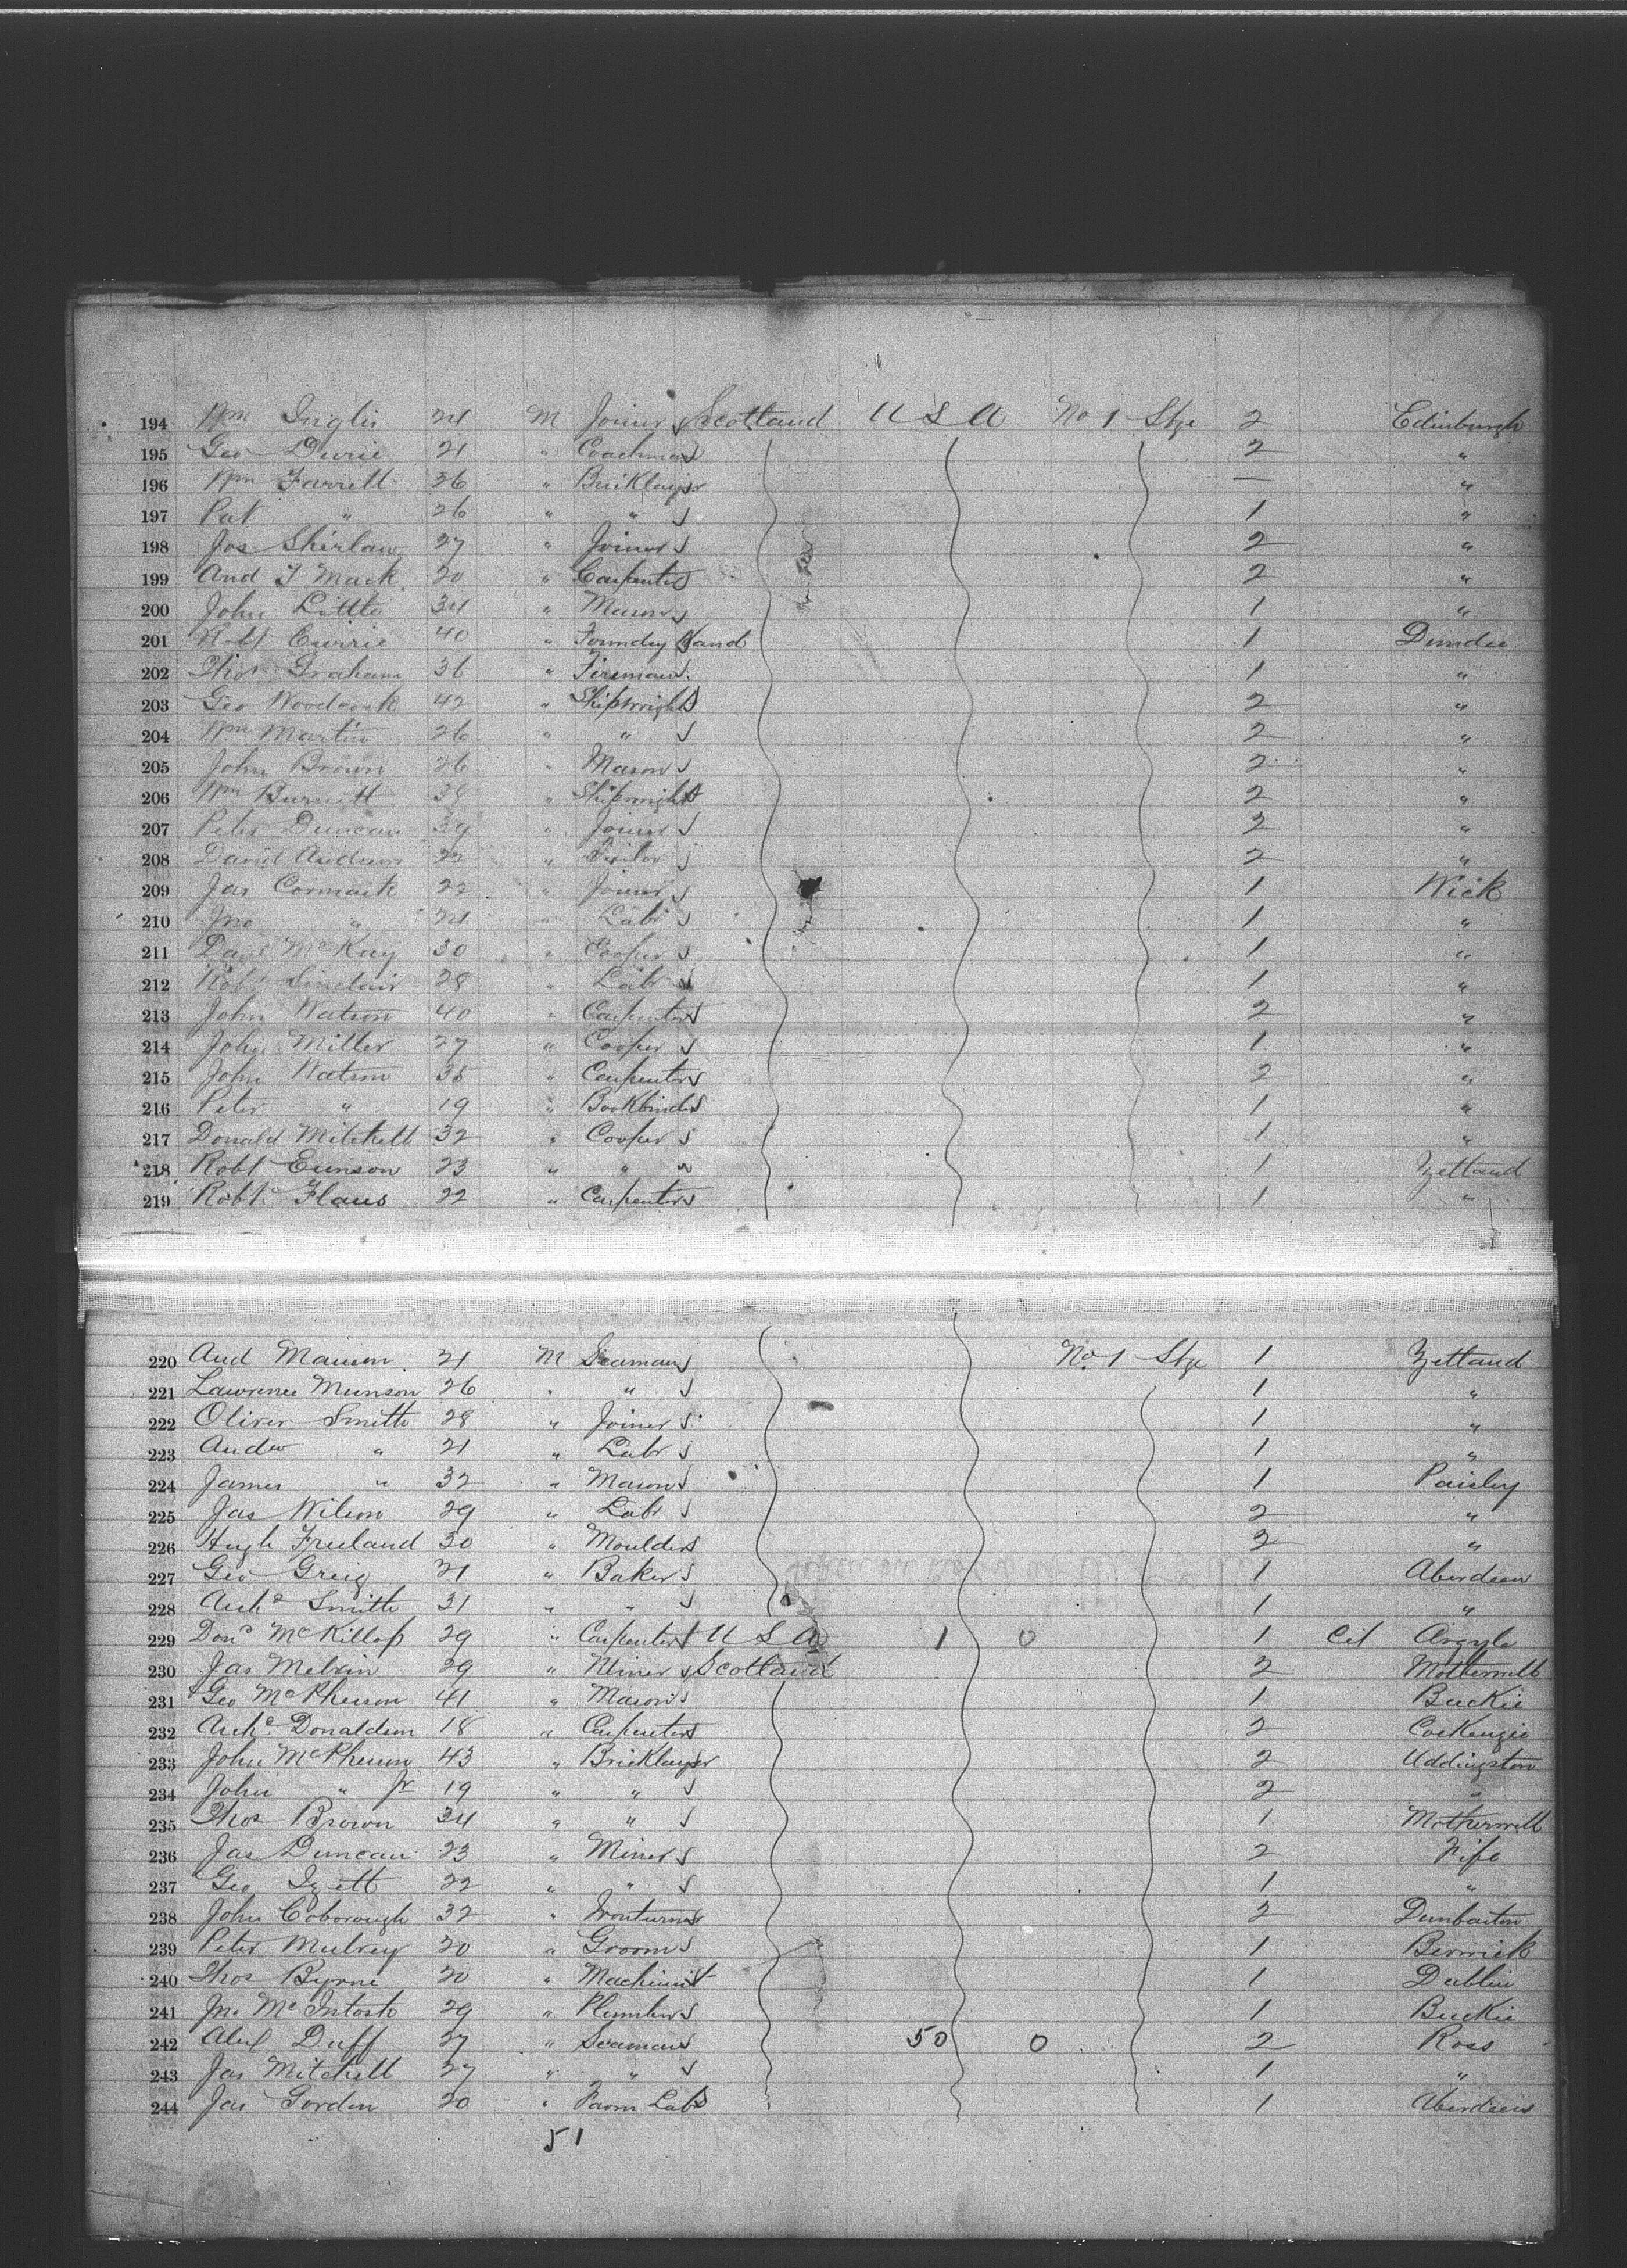 194 Wm Inglis 24 M Joiner s Scotland U S A No 1 Stge 2 Edinburgh
195 Geo Durie 21 " Coachman s 2 "
196 Wm Farrell 36 " Bricklayer s — "
197 Pat " 26 " " s 1 "
198 Jos Shirlaw 27 " Joiner s 2 "
199 And T Mack 20 " Carpenter s 2 "
200 John Little 34 " Mason s 1 "
201 Robt Currie 40 " Foundry Hand 1 Dundee
202 Thos Graham 36 " Fireman s 1 "
203 Geo Woodcock 42 " Shipwright s 2 "
204 Wm Martin 26 " " s 2 "
205 John Brown 26 " Mason s 2 "
206 Wm Burnett 38 " Shipwright s 2 "
207 Peter Duncan 39 " Joiner s 2 "
208 David 22 " s 2 "
209 Jas Cormack 22 " Joiner s 1 Wick
210 Jno " 24 " Labr s 1 "
211 Davd McKay 30 " Cooper s 1 "
212 Robt Sinclair 28 " Labr s 1 "
213 John Watson 40 " Carpenter s 2 "
214 John Miller 27 " Cooper s 1 "
215 John Watson 38 " Carpenter s 2 "
216 Peter " 19 " Bookbinder s 1 "
217 Donald Mitchell 32 " Cooper s 1 "
218 Robt Eunson 23 " " " 1 Zetland
219 Robt Flaus 22 " Carpenter s 1 "
220 And Manson 21 M Seaman s No 1 Stge 1 Zetland
221 Lawrence Munson 26 " " s 1 "
222 Oliver Smith 28 " Joiner s 1 "
223 Andw " 21 " Labr s 1 "
224 James " 32 " Mason s 1 Paisley
225 Jas Wilson 29 " Labr s 2 "
226 Hugh Freeland 30 " Moulder s 2 "
227 Geo Greig 21 " Baker s 1 Aberdeen
228 Archd Smith 31 " " s 1 "
229 Dond McKillop 29 " Carpenter s U S A 1 0 1 Cit Argyle
230 Jas Melvin 29 " Miner s Scotland 2 Motherwell
231 Geo McPherson 41 " Mason s 1 Buckie
232 Archd Donaldson 18 " Carpenter s 2 Cockenzie
233 John McPherson 43 " Bricklayer s 2 Uddingston
234 John " Jr 19 " " s 2 "
235 Thos Brown 34 " " s 1 Motherwell
236 Jas Duncan 23 " Miner s 2 Fife
237 Geo Izett 22 " " s 1 "
238 John Coborough 32 " Ironturner s 2 Dunbarton
239 Peter Mulvey 20 " Groom s 1 Berwick
240 Thos Byrne 20 " Machinist 1 Dublin
241 Jno McIntosh 29 " Plumber s 1 Buckie
242 Alex Duff 27 " Seaman s 50 0 2 Ross
243 Jas Mitchell 27 " " s 1 "
244 Jas Gordon 20 " Farm Lab s 1 Aberdeen
51